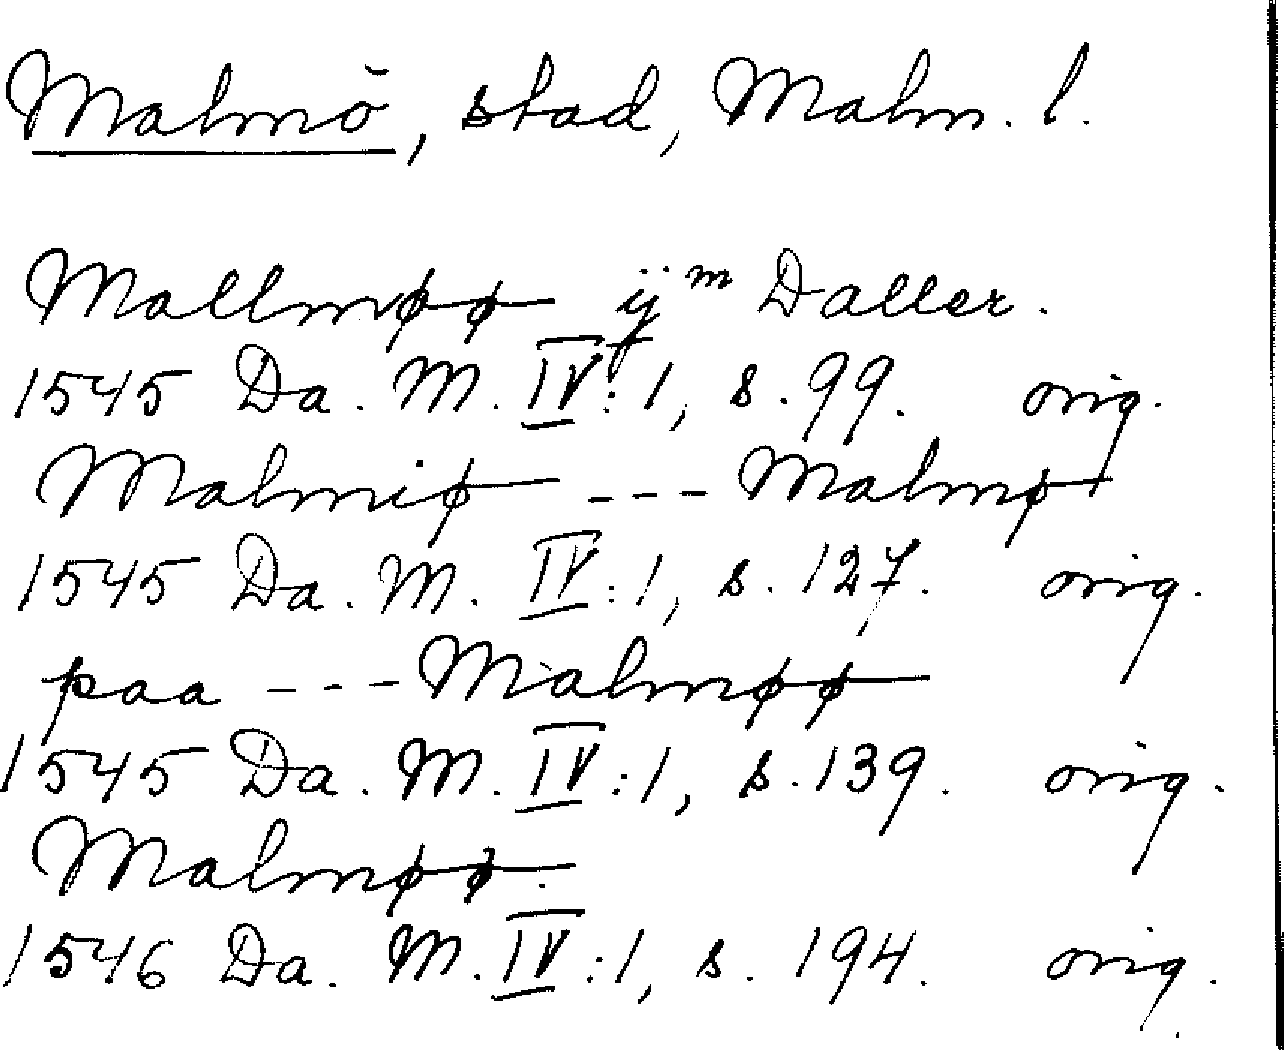 Malmö, stad, Malm. l.
Mallmøø ijᵐ Daller.
1545 Da. M. IV:1, s. 99. orig.
Malmiø --- Malmø
1545 Da. M. IV:1, s. 127. orig.
paa --- Malmøø
1545 Da. M. IV:1, s. 139. orig.
Malmøø.
1546 Da. M. IV:1, s. 194. orig.